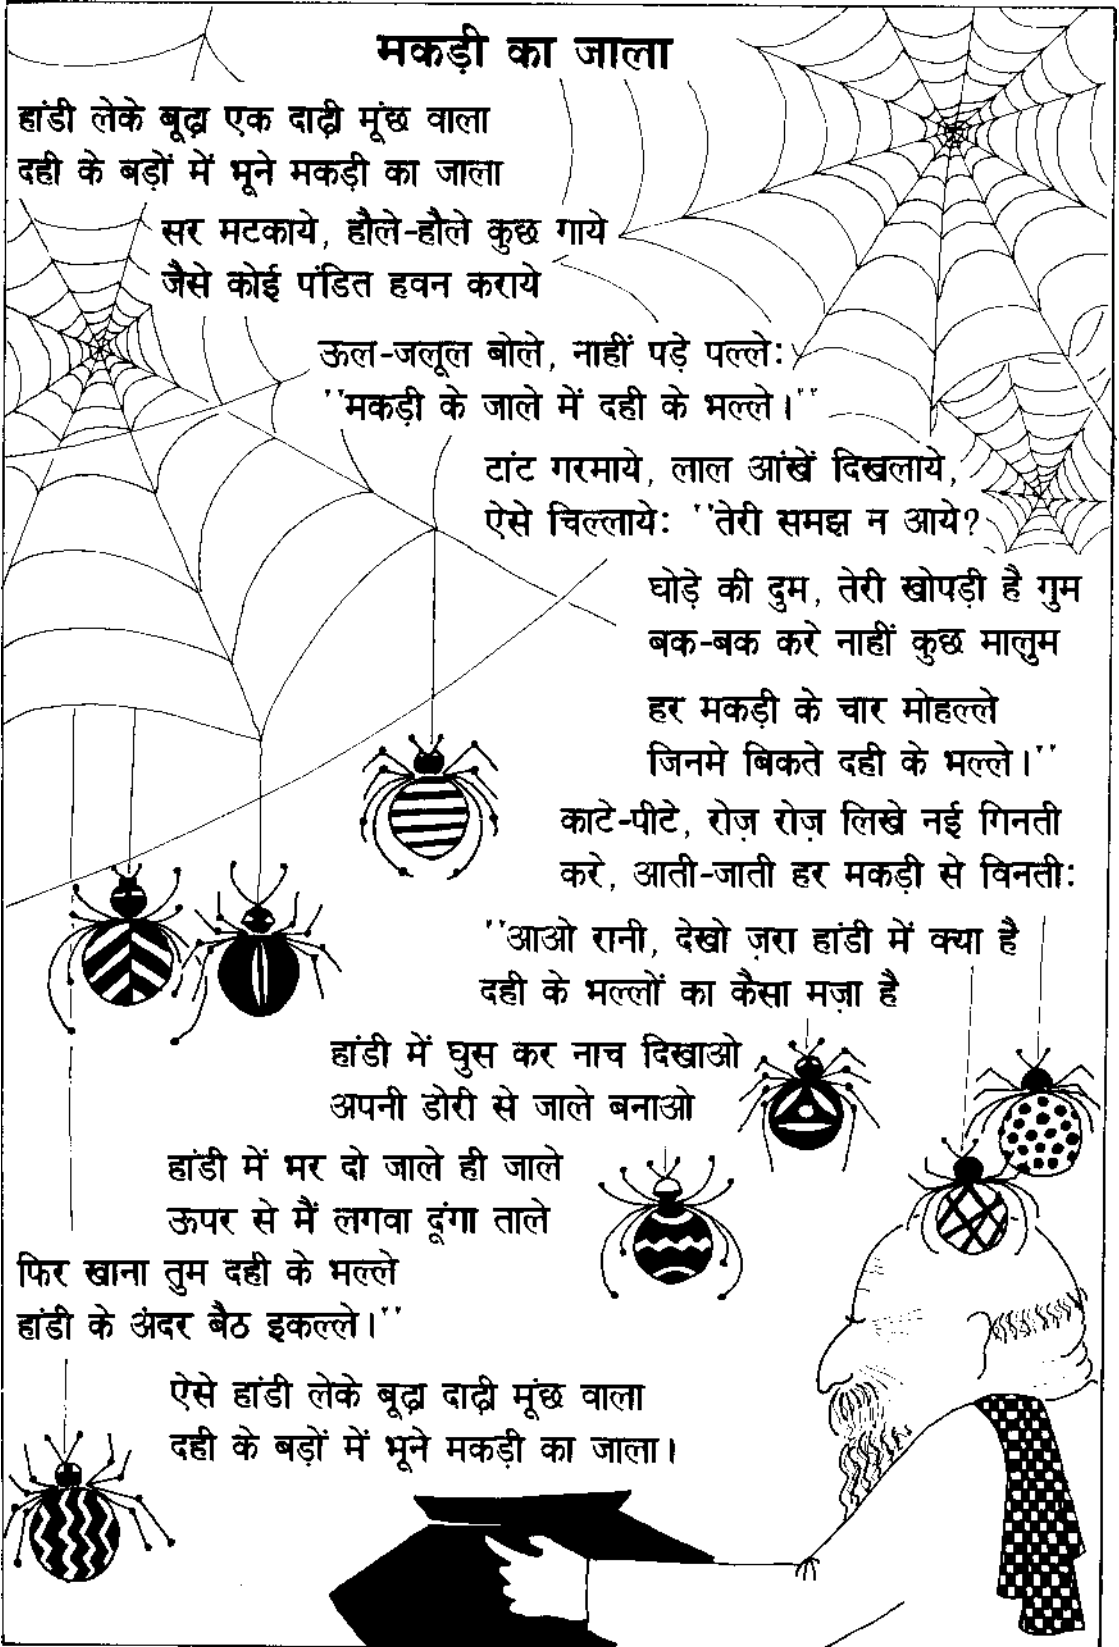 मकड़ी का जाला
हांडी लेके बूढ़ा एक दाढ़ी मूंछ वाला
दही के बड़ों में भूने मकड़ी का जाला
सर मटकाये, हौले-हौले कुछ गाये
जैसे कोई पंडित हवन कराये
ऊल-जलूल बोले, नाहीं पड़े पल्ले:
''मकड़ी के जाले में दही के भल्ले।''
टांट गरमाये, लाल आंखें दिखलाये,
ऐसे चिल्लाये: ''तेरी समझ न आये?
घोड़े की दुम, तेरी खोपड़ी है गुम
बक-बक करे नाहीं कुछ मालुम
हर मकड़ी के चार मोहल्ले
जिनमे बिकते दही के भल्ले।''
काटे-पीटे, रोज़ रोज़ लिखे नई गिनती
करे, आती-जाती हर मकड़ी से विनती:
''आओ रानी, देखो ज़रा हांडी में क्या है
दही के भल्लों का कैसा मज़ा है
हांडी में घुस कर नाच दिखाओ
अपनी डोरी से जाले बनाओ
हांडी में भर दो जाले ही जाले
ऊपर से मैं लगवा दूंगा ताले
फिर खाना तुम दही के भल्ले
हांडी के अंदर बैठ इकल्ले।''
ऐसे हांडी लेके बूढ़ा दाढ़ी मूंछ वाला
दही के बड़ों में भूने मकड़ी का जाला।